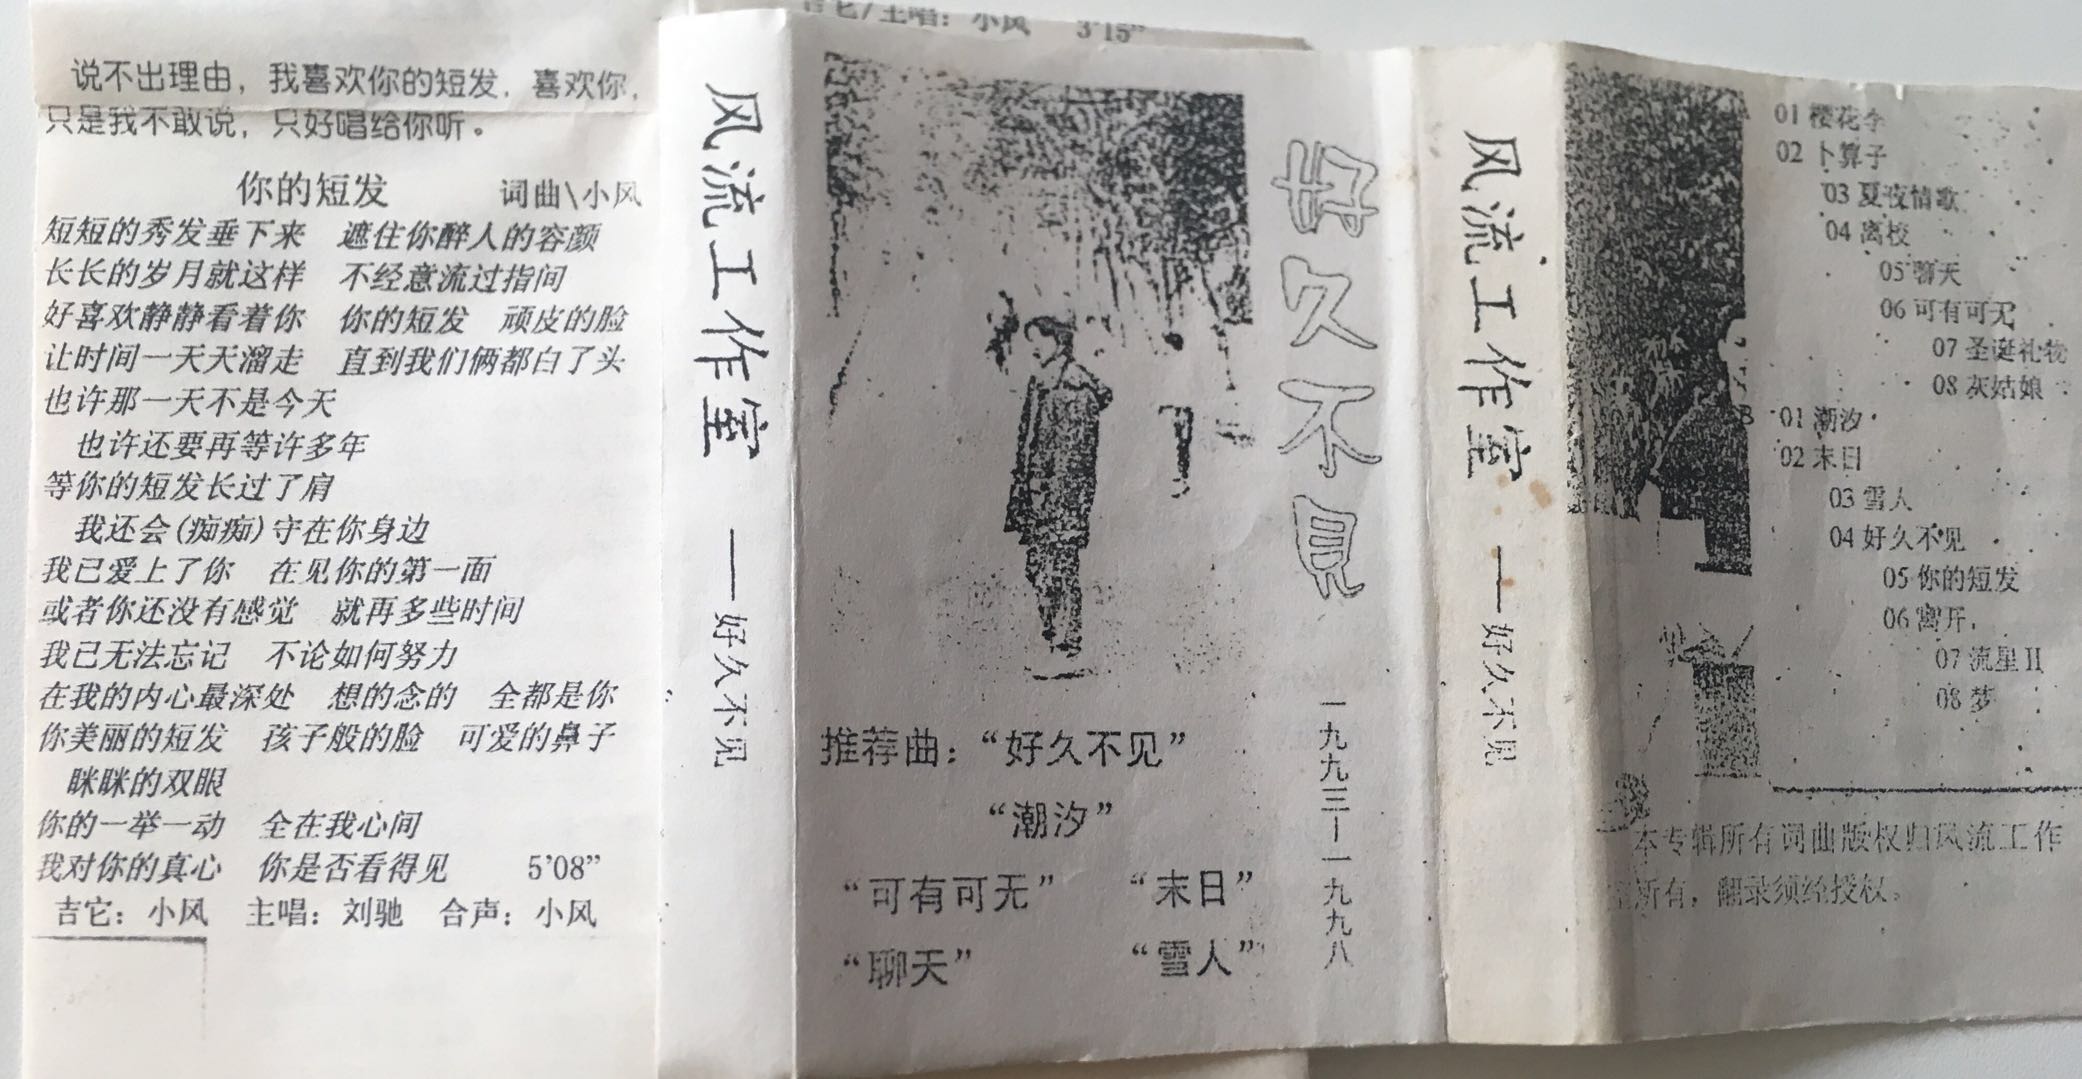 吉它/主唱：小风 3'15”
说不出理由，我喜欢你的短发，喜欢你，
只是我不敢说，只好唱给你听。
你的短发 词曲\小风
短短的秀发垂下来 遮住你醉人的容颜
长长的岁月就这样 不经意流过指间
好喜欢静静看着你 你的短发 顽皮的脸
让时间一天天溜走 直到我们俩都白了头
也许那一天不是今天
也许还要再等许多年
等你的短发长过了肩
我还会(痴痴)守在你身边
我已爱上了你 在见你的第一面
或者你还没有感觉 就再多些时间
我已无法忘记 不论如何努力
在我的内心最深处 想的念的 全都是你
你美丽的短发 孩子般的脸 可爱的鼻子
眯眯的双眼
你的一举一动 全在我心间
我对你的真心 你是否看得见 5'08”
吉它：小风 主唱：刘驰 合声：小风
风流工作室 ——好久不见
好久不見
一九九三—一九九八
推荐曲：“好久不见”
“潮汐”
“可有可无” “末日”
“聊天” “雪人”
风流工作室 ——好久不见
01 樱花伞
02 卜算子
03 夏夜情歌
04 离校
05 聊天
06 可有可无
07 圣诞礼物
08 灰姑娘
B 01 潮汐
02 末日
03 雪人
04 好久不见
05 你的短发
06 离开
07 流星II
08 梦
本专辑所有词曲版权归风流工作
室所有，翻录须经授权。